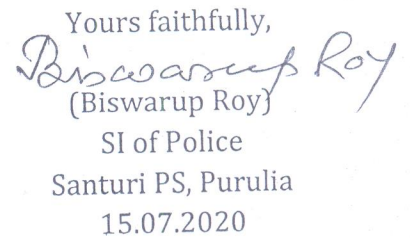 Yours faithfully,
Biswarup Roy
(Biswarup Roy)
SI of Police
Santuri PS, Purulia
15.07.2020